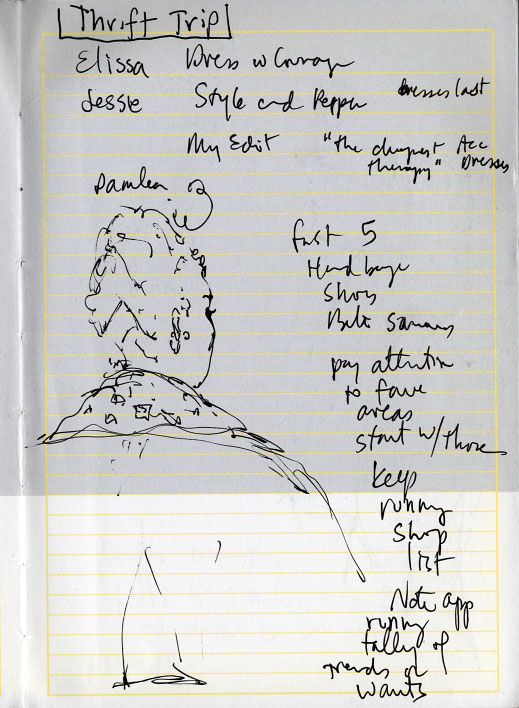 Thrift Trip
Elissa Dress w Courage
Jessie Style and Pepper Dresses last
My Edit "the cheapest Acc
therapy" Dresses
first 5
Hand bags
Shoes
Belts
pay attention
to fave
areas
start w/ those
keep
running
shop
list
Note app
running
tally of
trends or
wants